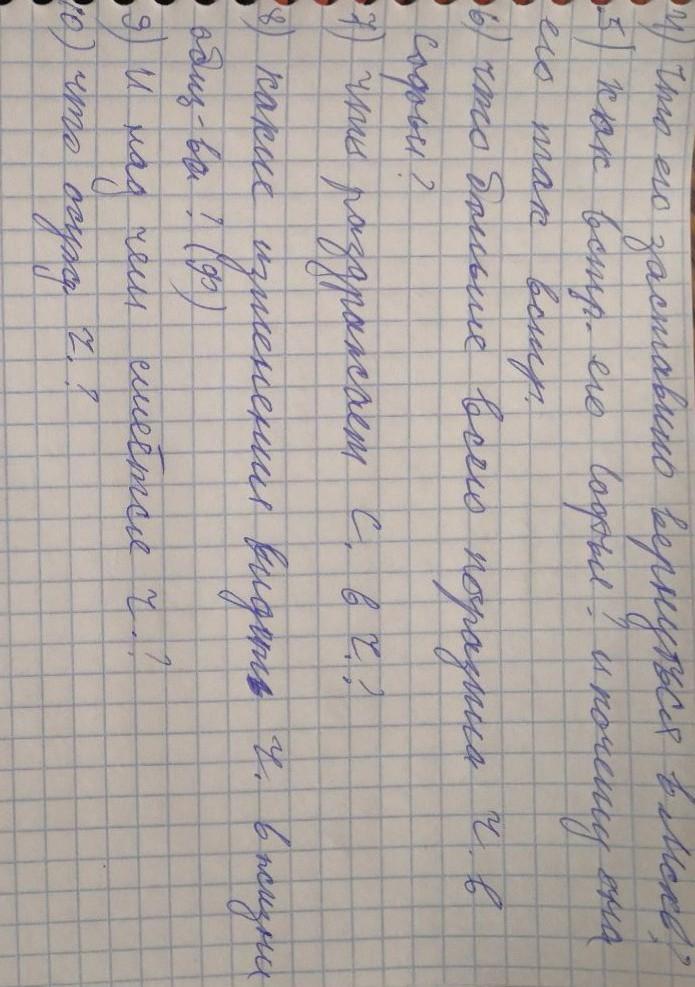 4) Что его заставило вернуться в Москв?
5) как встр. его Софья? и почему она
его так встр.
6) что больше всего поразила Ч. в
Софьи?
7) Что раздражает С. в Ч.?
8) какие изменения видить Ч. в жизни
общ-ва? (Ф)
9) И над чем смеётся Ч.?
10) что осужд Ч.?